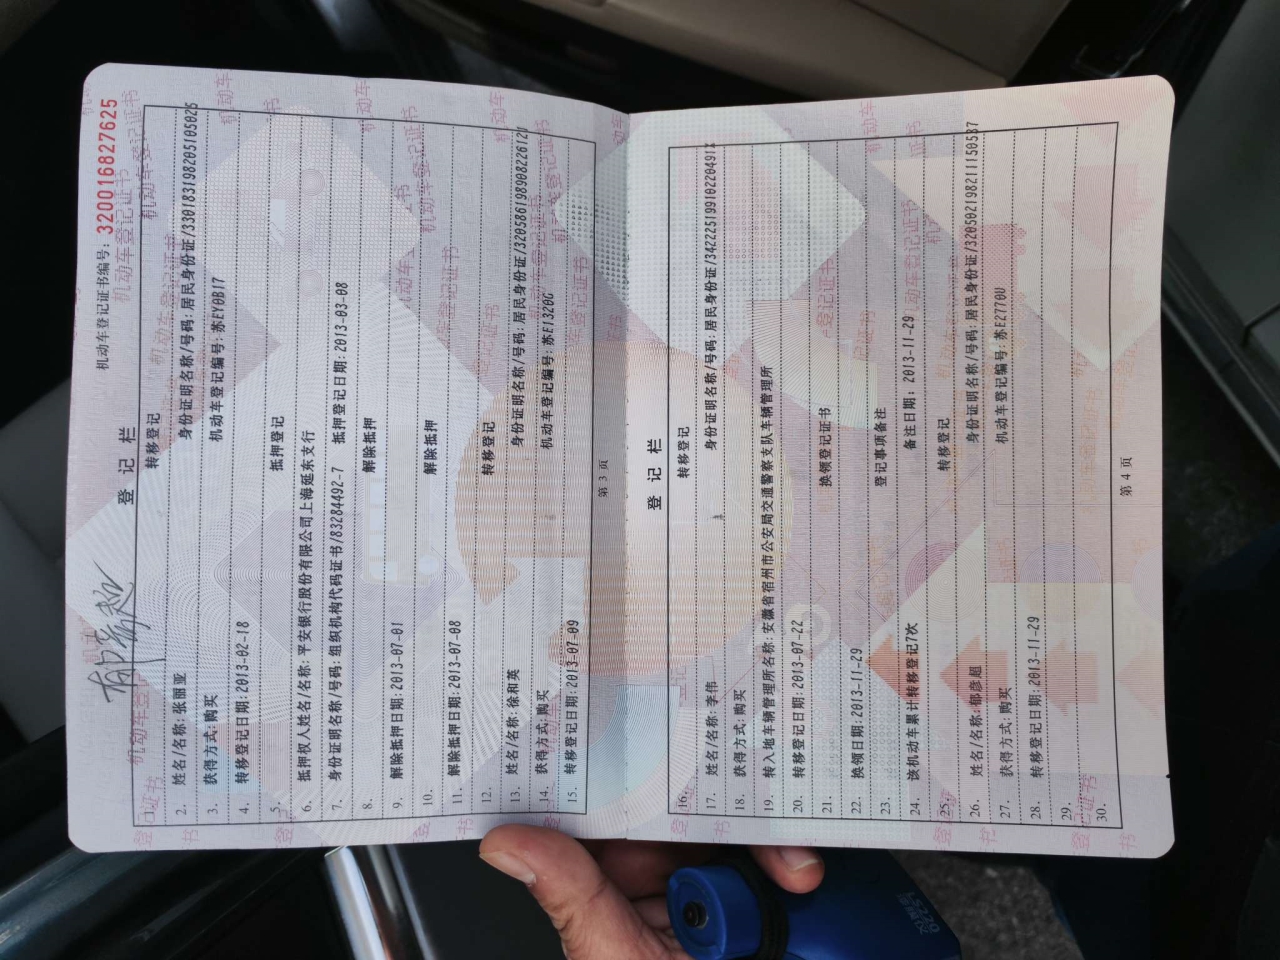 机动车登记证书编号: 320016827625
登 记 栏
1. 转移登记
2. 姓名/名称: 张丽亚 身份证明名称/号码: 居民身份证/330183198205105025
3. 获得方式: 购买 机动车登记编号: 苏EY0B17
4. 转移登记日期: 2013-02-18
5. 抵押登记
6. 抵押权人姓名/名称: 平安银行股份有限公司上海延东支行
7. 身份证明名称/号码: 组织机构代码证书/83284492-7 抵押登记日期: 2013-03-08
8. 解除抵押
9. 解除抵押日期: 2013-07-01
10. 解除抵押
11. 解除抵押日期: 2013-07-08
12. 转移登记
13. 姓名/名称: 徐和英 身份证明名称/号码: 居民身份证/320586198908226121
14. 获得方式: 购买 机动车登记编号: 苏E1320G
15. 转移登记日期: 2013-07-09
第 3 页
登 记 栏
16. 转移登记
17. 姓名/名称: 李伟 身份证明名称/号码: 居民身份证/34222519910220491X
18. 获得方式: 购买
19. 转入地车辆管理所名称: 安徽省宿州市公安局交通警察支队车辆管理所
20. 转移登记日期: 2013-07-22
21. 换领登记证书
22. 换领日期: 2013-11-29
23. 登记事项备注
24. 该机动车累计转移登记7次 备注日期: 2013-11-29
25. 转移登记
26. 姓名/名称: 郁彦超 身份证明名称/号码: 居民身份证/320502198211150537
27. 获得方式: 购买 机动车登记编号: 苏E2770U
28. 转移登记日期: 2013-11-29
29.
30.
第 4 页